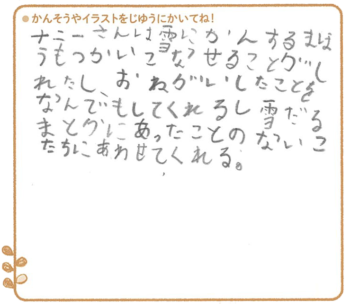 かんそうやイラストをじゆうにかいてね!
ナニーさんは雪にかんするまほ
うもつかいこなせることがし
れたし、おねがいしたことを
なんでもしてくれるし雪だる
まとかにあったことのないこ
たちにあわせてくれる。